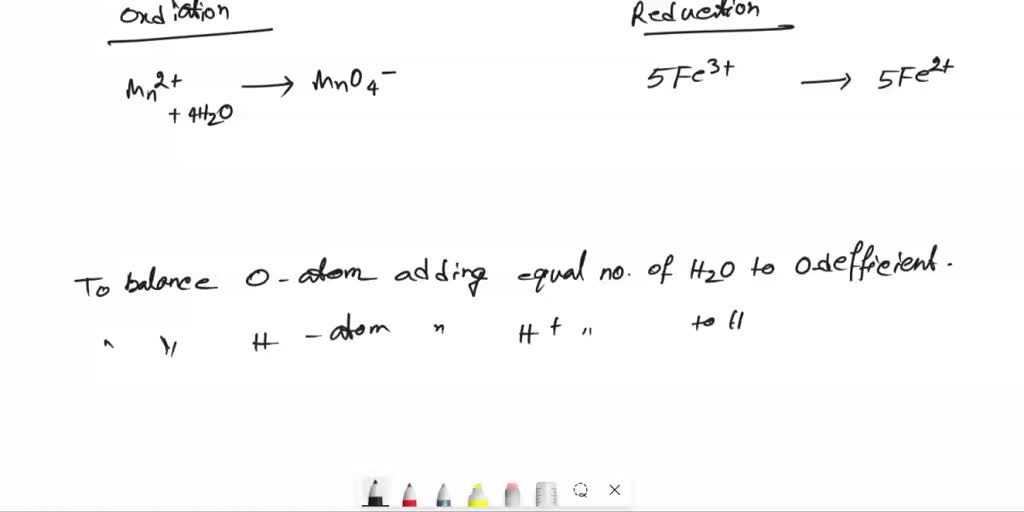 Oxdiation
Reduction
Mn²⁺ + 4H₂O ⟶ MnO₄⁻
5Fe³⁺ ⟶ 5Fe²⁺
To balance O-atom adding equal no. of H₂O to O-defficient.
" " H-atom " H⁺ " to H